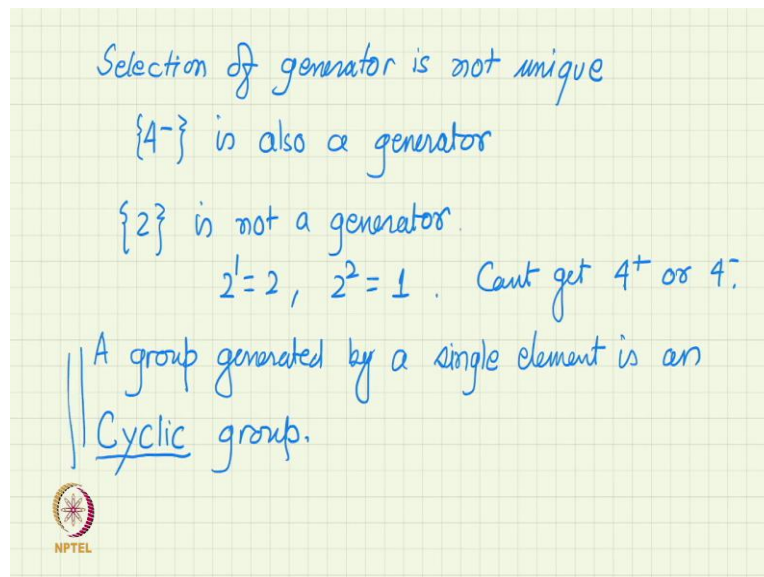 Selection of generator is not unique
{4-} is also a generator
{2} is not a generator.
2¹=2, 2²=1. Cant get 4⁺ or 4⁻.
A group generated by a single element is an
Cyclic group.
NPTEL